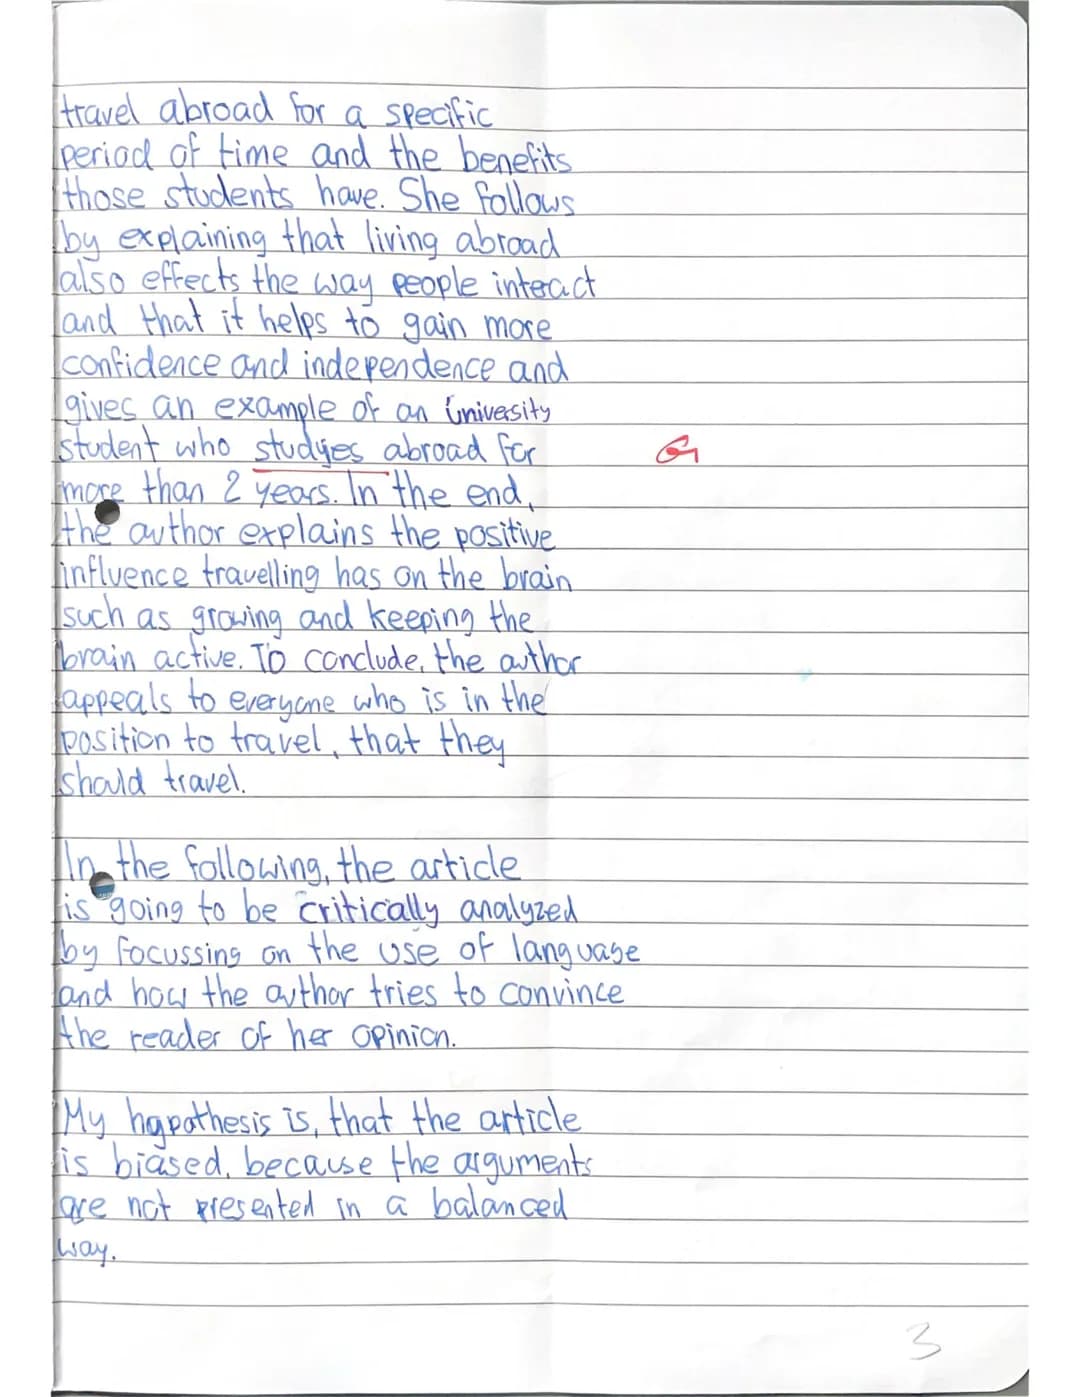 travel abroad for a specific
period of time and the benefits
those students have. She follows
by explaining that living abroad
also effects the way people interact
and that it helps to gain more
confidence and independence and
gives an example of an university
student who studyes abroad for
G
more than 2 years. In the end,
the author explains the positive
influence travelling has on the brain
such as growing and keeping the
brain active. To conclude, the author
appeals to everyone who is in the
position to travel, that they
should travel.
In the following, the article
is going to be critically analyzed
by focussing on the use of language
and how the author tries to convince
the reader of her opinion.
My hypothesis is, that the article
is biased, because the arguments
are not presented in a balanced
way.
3